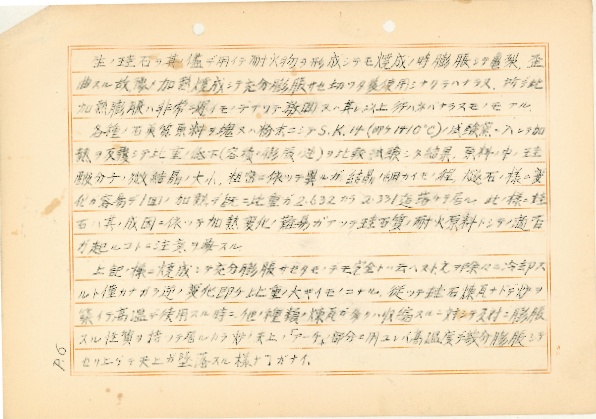 生ノ珪石ヲ其儘デ用イテ耐火物ヲ形成シテモ焼成ノ時膨脹シテ亀裂、歪
曲スル故豫メ加熱焼成シテ充分膨脹サセ切ツタ後使用シナケレバナラヌ、所ガ此
加熱膨脹ハ非常ニ遅イモノデアツテ数回又ハ其レ以上行ハネバナラヌモノモアル。
各種ノ石英質原料ヲ塊又ハ粉末ニシテS.K.14(即チ1410°C)ノ試験窯ニ入レテ加
熱ヲ反覆シテ比重ノ低下(容積ノ膨脹ノ逆)ヲ比較試験シタ結果、原料ノ中ノ珪
酸分子ノ微結晶ノ大小、粗密ニ依ツテ異ルガ結晶ノ細カイモノ程
化ガ容易デ1回ノ加熱デ既ニ比重ガ2.632カラ2.331迄落チテ居ル 此ノ様ニ珪
石ハ其ノ成因ニ依ツテ加熱変化ノ難易ガアツテ珪石質ノ耐火原料トシテノ適否
ガ起ルコトニ注意ヲ要スル
上記ノ様ニ焼成シテ充分膨脹サセタモノデモ完全ト云ヘス 冷却ス
ルト僅カナガラ逆ノ変化即チ比重ノ大キイモノニナル。従ツテ珪石煉瓦ナドデ炉ヲ
築イテ高温デ使用スル時ニ他ノ種類ノ煉瓦ガ多少ハ収縮スルニ対シテ反対ニ膨脹
スル性質ヲ持ツテ居ルカラ炉ノ天上ノ「アーチ」部分ニ用ユレバ高温度デ幾分膨脹シテ
セリ上ゲテ天上ガ墜落スル様ナコガナイ。
P.5